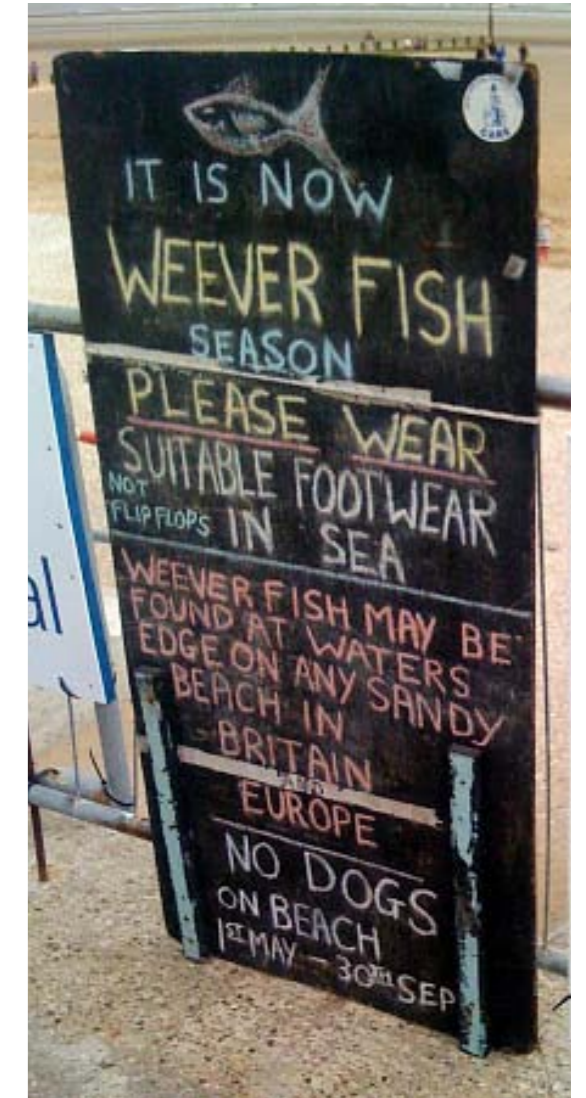 IT IS NOW
WEEVER FISH
SEASON
PLEASE WEAR
SUITABLE FOOTWEAR
NOT
FLIPFLOPS
IN SEA
WEEVER FISH MAY BE
FOUND AT WATERS
EDGE ON ANY SANDY
BEACH IN
BRITAIN
AND
EUROPE
NO DOGS
ON BEACH
1ST MAY - 30TH SEP
al
CARE